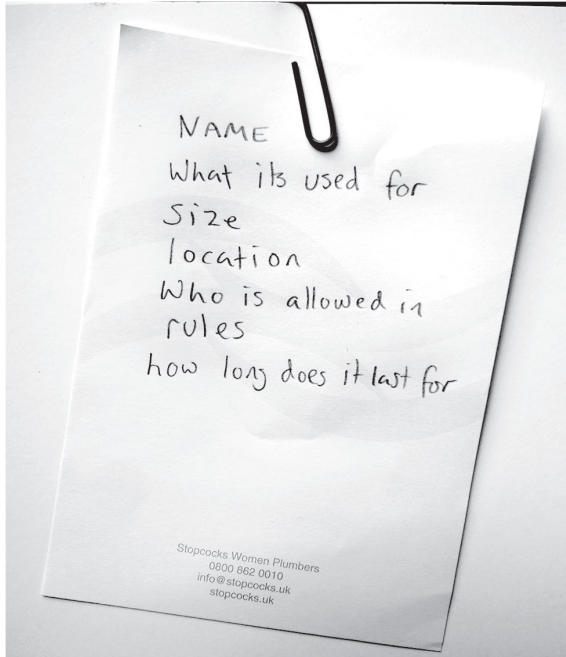 NAME
What its used for
Size
location
Who is allowed in
rules
how long does it last for
Stopcocks Women Plumbers
0800 862 0010
info@stopcocks.uk
stopcocks.uk